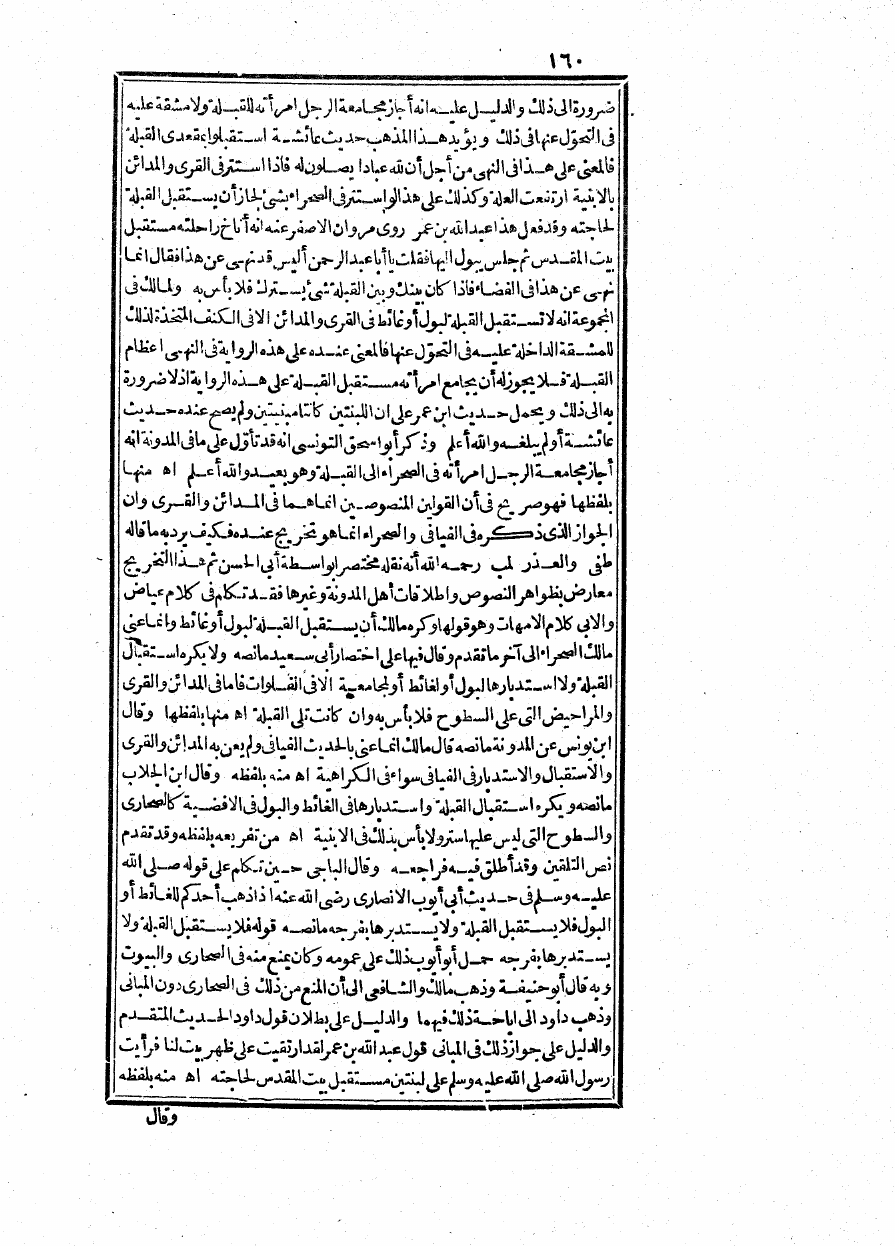 ١٦٠
ضرورة الى ذلك والدليل عليه انه أجاز مجامعة الرجل امرأته للقبلة ولا مشقة عليه
فى التحوّل عنها فى ذلك ويؤيد هذا المذهب حديث عائشة استقبلوا بمقعدى القبلة
فالمعنى على هذا فى النهى من أجل أن لله عبادا يصلون له فاذا استتر فى القرى والمدائن
بالابنية ارتفعت العلة وكذلك على هذا لو استتر فى الصحراء بشئ لجاز أن يستقبل القبلة
لحاجته وقد فعل هذا عبد الله بن عمر روى مروان الاصفر عنه انه أناخ راحلته مستقبل
بيت المقدس ثم جلس يبول اليها فقلت يا أبا عبد الرحمن أليس قد نهى عن هذا فقال انما
نهى عن هذا فى الفضاء فاذا كان بينك وبين القبلة شئ يسترك فلا بأس به ولمالك فى
المجموعة انه لا تستقبل القبلة لبول أو غائط فى القرى والمدائن الا فى الكنف المتخذة لذلك
للمشقة الداخلة عليه فى التحوّل عنها فالمعنى عنده على هذه الرواية فى النهى اعظام
القبلة فلا يجوز له أن يجامع امرأته مستقبل القبلة على هذه الرواية اذ لا ضرورة
به الى ذلك ويحمل حديث ابن عمر على ان اللبنتين كانتا مبنيتين ولم يصح عنده حديث
عائشة أو لم يبلغه والله أعلم وذكر أبو اسحق التونسى انه قد تأول على ما فى المدونة انه
أجاز مجامعة الرجل امرأته فى الصحراء الى القبلة وهو بعيد والله أعلم اه منها
بلفظها فهو صريح فى أن القولين المنصوصين انما هما فى المدائن والقرى وان
الجواز الذى ذكره فى الفيافى والصحراء انما هو تخريج عنده فكيف يرد به ما قاله
طفى والعذر لمب رحمه الله أنه نقله مختصرا بواسطة أبى الحسن ثم هذا التخريج
معارض بظواهر النصوص واطلاقات أهل المدونة وغيرها فقد تكلم فى كلام عياض
والابى كلام الامهات وهو قولها وكره مالك أن يستقبل القبلة لبول أو غائط وانما عنى
مالك الصحراء الى آخر ما تقدم وقال فيها على اختصار أبى سعيد مانصه ولا يكره استقبال
القبلة ولا استدبارها لبول أو لغائط أو لمجامعة الا فى الفلوات فاما فى المدائن والقرى
والمراحيض التى على السطوح فلا بأس به وان كانت تلى القبلة اه منها بلفظها وقال
ابن يونس عن المدونة مانصه قال مالك انما عنى بالحديث الفيافى ولم يعن به المدائن والقرى
والاستقبال والاستدبار فى الفيافى سواء فى الكراهية اه منه بلفظه وقال ابن الجلاب
مانصه ويكره استقبال القبلة واستدبارها فى الغائط والبول فى الافضية كالصحارى
والسطوح التى ليس عليها ستر ولا بأس بذلك فى الابنية اه من تفريعه بلفظه وقد تقدم
نص التلقين وقد أطلق فيه فراجعه وقال الباجى حين تكلم على قوله صلى الله
عليه وسلم فى حديث أبى أيوب الانصارى رضى الله عنه اذا ذهب أحدكم للغائط أو
البول فلا يستقبل القبلة ولا يستدبرها بفرجه مانصه قوله فلا يستقبل القبلة ولا
يستدبرها بفرجه حمل أبو أيوب ذلك على عمومه وكان يمنع منه فى الصحارى والبيوت
وبه قال أبو حنيفة وذهب مالك والشافعى الى أن المنع من ذلك فى الصحارى دون المبانى
وذهب داود الى اباحة ذلك فيهما والدليل على بطلان قول داود الحديث المتقدم
والدليل على جواز ذلك فى المبانى قول عبد الله بن عمر لقد ارتقيت على ظهر بيت لنا فرأيت
رسول الله صلى الله عليه وسلم على لبنتين مستقبل بيت المقدس لحاجته اه منه بلفظه
وقال